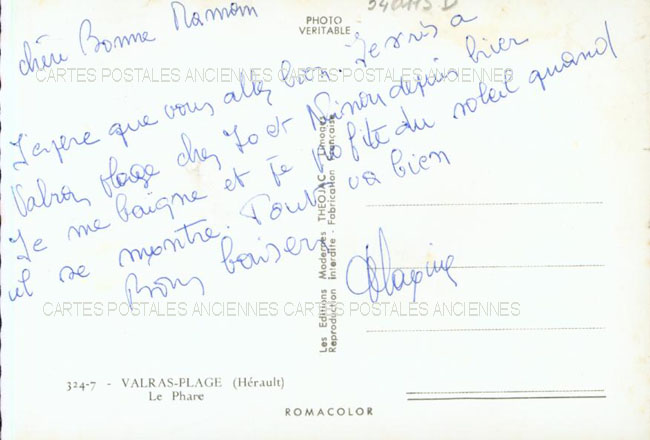 PHOTO
VERITABLE
340113 D
chère Bonne Maman
J'espère que vous allez bien. Je suis à
Valras plage chez Jo et Ninou depuis hier
Je me baigne et je profite du soleil quand
il se montre. Tout va bien
Bons baisers
CARTES POSTALES ANCIENNES CARTES POSTALES ANCIENNES
CARTES POSTALES ANCIENNES CARTES POSTALES ANCIENNES
Les Editions Modernes THEOJAC - Limoges
Reproduction Interdite - Fabrication Française
324-7 - VALRAS-PLAGE (Hérault)
Le Phare
ROMACOLOR